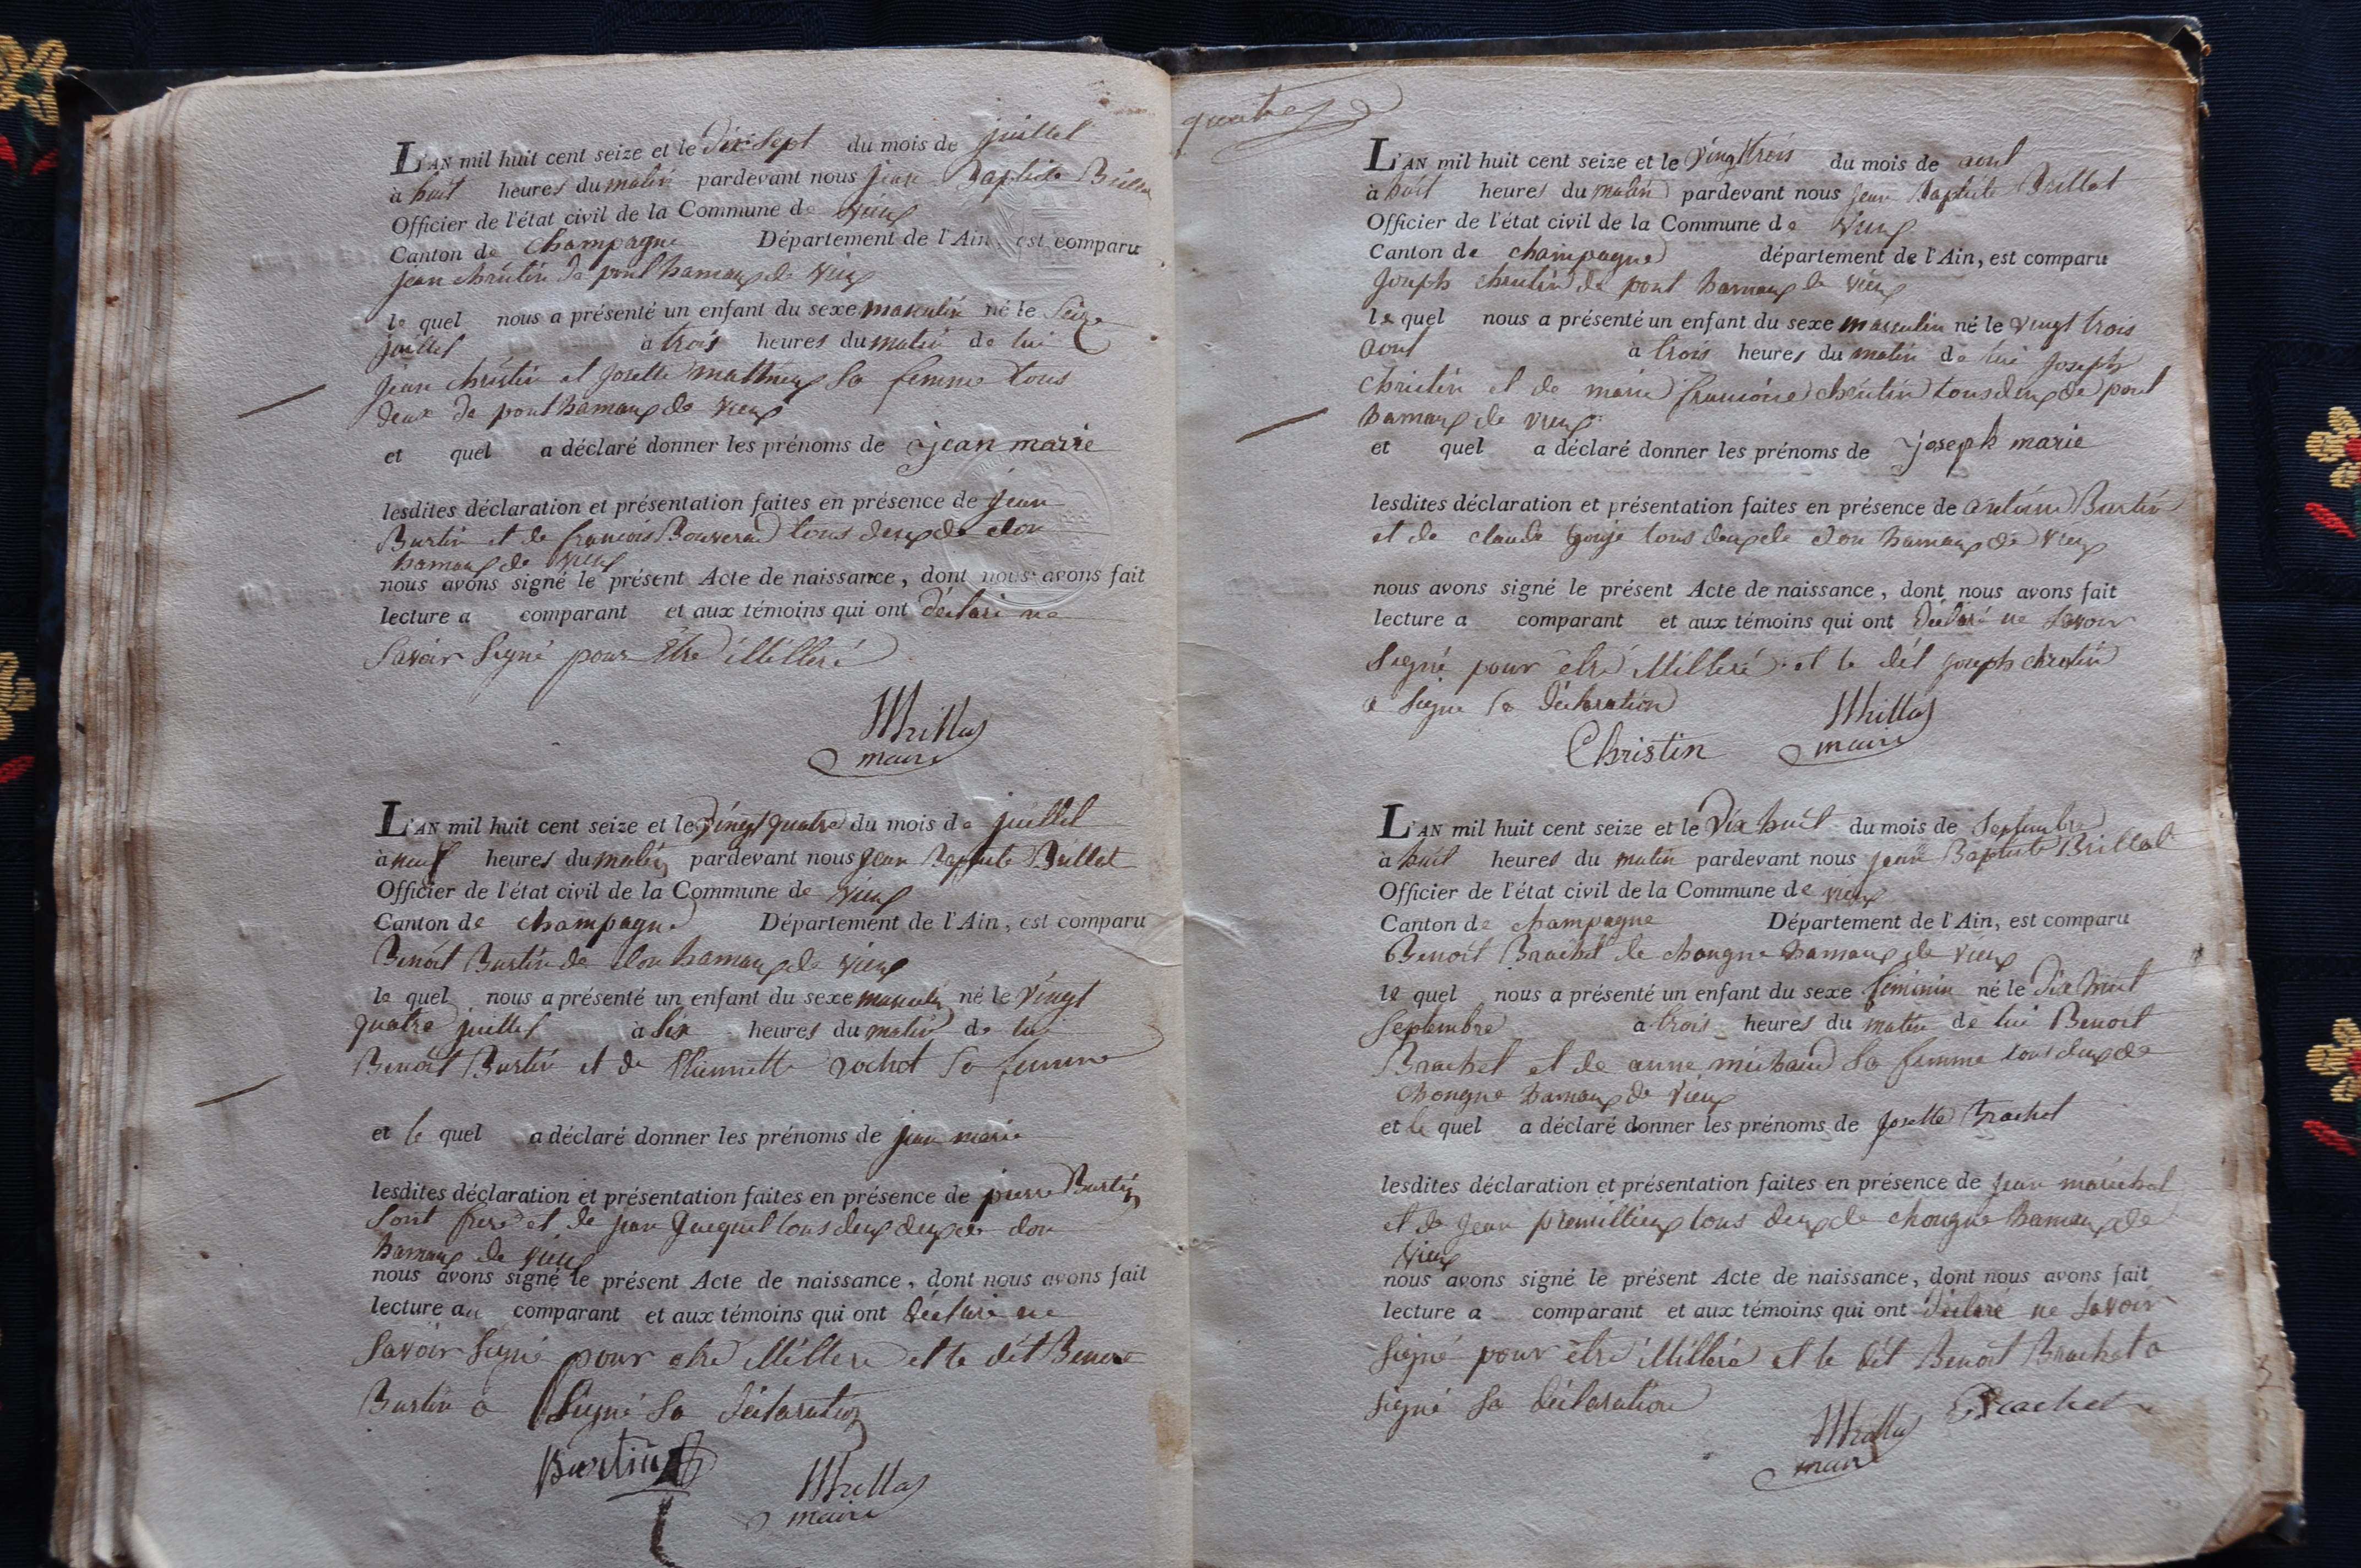 L'AN mil huit cent seize et le Dix Sept du mois de juillet
à huit heures du matin pardevant nous jean Baptiste
Officier de l'état civil de la Commune de vieux
Canton de Champagne Département de l'Ain, est comparu
jean christin de pont hamaux de vieux
le quel nous a présenté un enfant du sexe masculin né le Seize
juillet à trois heures du matin de lui
jean christin et josette matthieux sa femme tous
deux de pont hamaux de vieux
et quel a déclaré donner les prénoms de jean marie
lesdites déclaration et présentation faites en présence de jean
Burtin et de francois Bouverad tous deux de don
hamaux de vieux
nous avons signé le présent Acte de naissance, dont nous avons fait
lecture a comparant et aux témoins qui ont déclaré ne
Savoir Signé pour être illitteré
maire
L'AN mil huit cent seize et le vingt quatre du mois de juillet
à neuf heures du matin pardevant nous jean Baptiste Brillat
Officier de l'état civil de la Commune de vieux
Canton de champagne Département de l'Ain, est comparu
Benoit Burtin de don hamaux de vieux
le quel nous a présenté un enfant du sexe masculin né le vingt
quatre juillet à six heures du matin de lui
Benoit Burtin et de Etiennette rochet sa femme
et le quel a déclaré donner les prénoms de jean marie
lesdites déclaration et présentation faites en présence de pierre Burtin
sont frere et de jean jacquet tous deux deux de don
hamaux de vieux
nous avons signé le présent Acte de naissance, dont nous avons fait
lecture au comparant et aux témoins qui ont déclaré ne
Savoir Signé pour etre illitteré et le dit Benoit
Burtin a Signé sa déclaration
Burtin
maire
L'AN mil huit cent seize et le vingt trois du mois de aout
à huit heures du matin pardevant nous jean Baptiste Brillat
Officier de l'état civil de la Commune de vieux
Canton de champagne département de l'Ain, est comparu
joseph christin de pont hamaux de vieux
le quel nous a présenté un enfant du sexe masculin né le vingt trois
aout à trois heures du matin de lui joseph
christin et de marie francoise christin tous deux de pont
hamaux de vieux
et quel a déclaré donner les prénoms de joseph marie
lesdites déclaration et présentation faites en présence de antoine Burtin
et de claude gouje tous deux de don hamaux de vieux
nous avons signé le présent Acte de naissance, dont nous avons fait
lecture a comparant et aux témoins qui ont déclaré ne Savoir
Signé pour être illitteré et le dit joseph christin
a Signe sa déclaration
Christin
maire
L'AN mil huit cent seize et le Dix huit du mois de Septembre
à huit heures du matin pardevant nous jean Baptiste Brillat
Officier de l'état civil de la Commune de vieux
Canton de champagne Département de l'Ain, est comparu
Benoit Brachet de chongne hamaux de vieux
le quel nous a présenté un enfant du sexe féminin né le Dix huit
Septembre à trois heures du matin de lui Benoit
Brachet et de anne michaud sa femme tous deux de
chongne hamaux de vieux
et le quel a déclaré donner les prénoms de josette Brachet
lesdites déclaration et présentation faites en présence de jean maréchal
et de jean premillieux tous deux de chongne hamaux de
vieux
nous avons signé le présent Acte de naissance, dont nous avons fait
lecture a comparant et aux témoins qui ont déclaré ne Savoir
Signé pour être illitteré et le dit Benoit Brachet a
signé sa déclaration
Brachet
maire